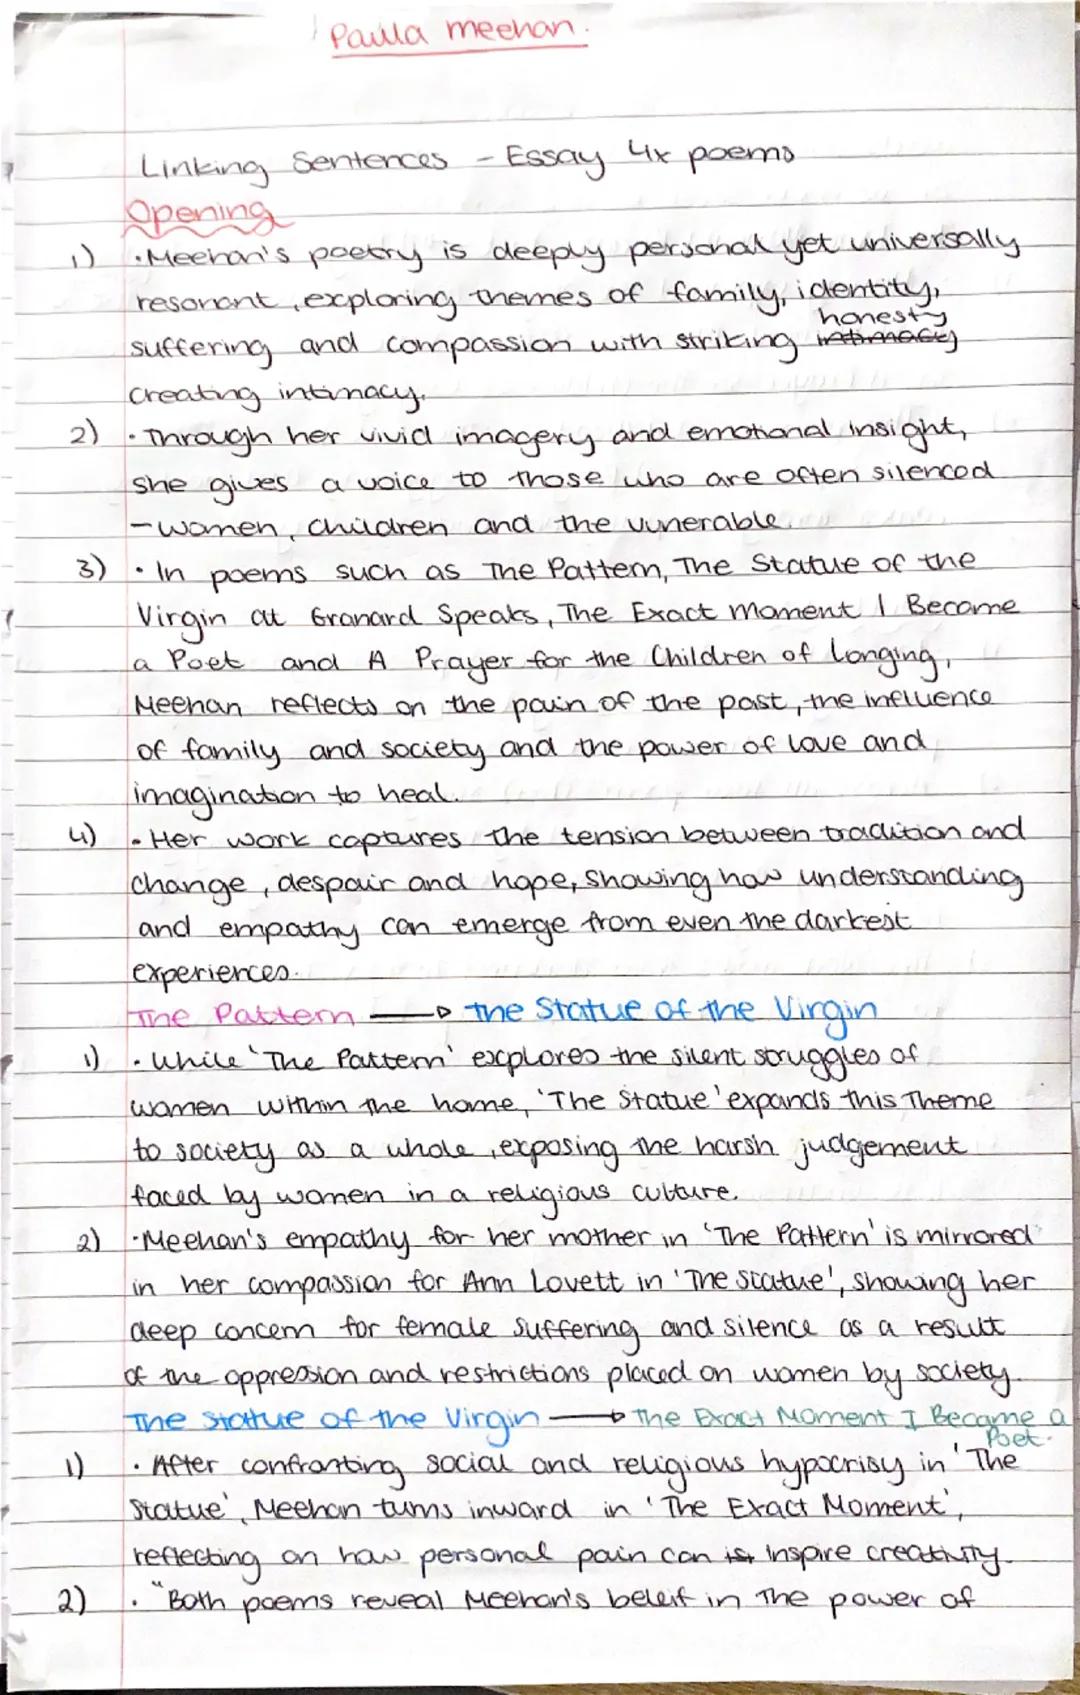 Paula Meehan.
Linking Sentences - Essay 4x poems
Opening
1) · Meehan's poetry is deeply personal yet universally
resonant, exploring themes of family, identity,
honesty
suffering and compassion with striking intimacy
creating intimacy.
2) · Through her vivid imagery and emotional insight,
she gives a voice to those who are often silenced
- women, children and the vunerable.
3) · In poems such as The Pattern, The Statue of the
Virgin at Granard Speaks, The Exact Moment I Became
a Poet and A Prayer for the Children of Longing,
Meehan reflects on the pain of the past, the influence
of family and society and the power of love and
imagination to heal.
4) · Her work captures the tension between tradition and
change, despair and hope, showing how understanding
and empathy can emerge from even the darkest
experiences.
The Pattern → the Statue of the Virgin
1) · While 'The Pattern' explores the silent struggles of
women within the home, 'The Statue' expands this Theme
to society as a whole, exposing the harsh judgement
faced by women in a religious culture.
2) · Meehan's empathy for her mother in 'The Pattern' is mirrored
in her compassion for Ann Lovett in 'The Statue', showing her
deep concern for female suffering and silence as a result
of the oppression and restrictions placed on women by society.
The Statue of the Virgin → The Exact Moment I Became a
Poet.
1) · After confronting social and religious hypocrisy in 'The
Statue', Meehan turns inward in 'The Exact Moment',
reflecting on how personal pain can inspire creativity.
2) · "Both poems reveal Meehan's beleif in the power of